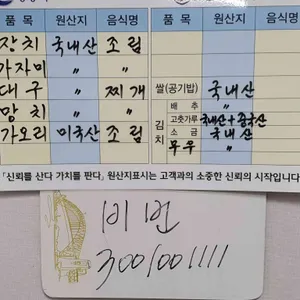 품 목 원산지 음식명 품 목 원산지 음식명
장치 국내산 조림
가자미 〃 〃
대구 〃 찌개 쌀(공기밥) 국내산
망치 〃 〃 김치 배추 〃
가오리 미국산 조림 고춧가루 국내산+중국산
소금 국내산
무우 〃
「신뢰를 산다 가치를 판다」 원산지표시는 고객과의 소중한 신뢰의 시작입니다
비번
3001001111